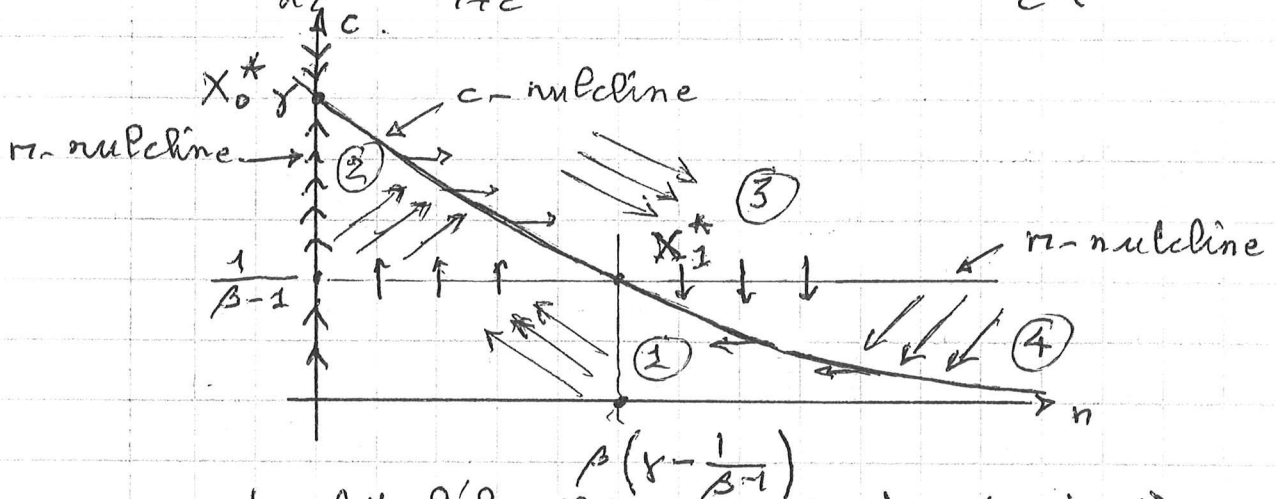 1+c
c
X₀* γ
c-nulcline
n-nulcline
②
③
X₁*
n-nulcline
1/(β-1)
①
④
n
β(γ - 1/(β-1))